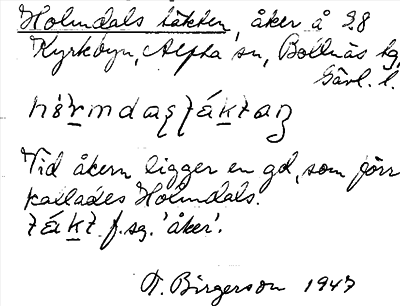 Holmdals täkten, åker å 28
Kyrkbyn, Alfta sn, Bollnäs tg,
Gävl. l.
Vid åkern ligger en gd, som förr
kallades Holmdals.
f.sg. 'åker'.
A. Birgerson 1947